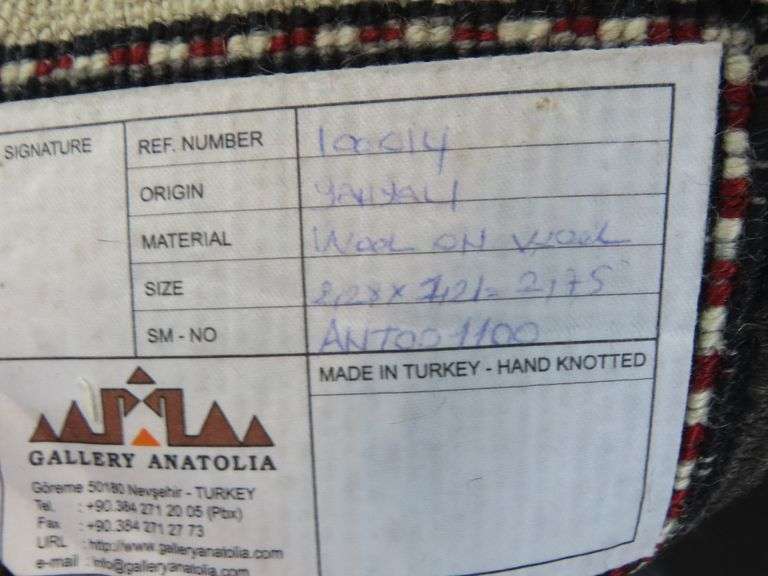 SIGNATURE
REF. NUMBER 100014
ORIGIN YAHYALI
MATERIAL WOOL ON WOOL
SIZE 2,28 x 1,21 = 2,75
SM - NO ANT001100
MADE IN TURKEY - HAND KNOTTED
GALLERY ANATOLIA
Göreme 50180 Nevşehir - TURKEY
Tel. : +90.384 271 20 05 (Pbx)
Fax : +90.384 271 27 73
URL : http://www.galleryanatolia.com
e-mail : info@galleryanatolia.com